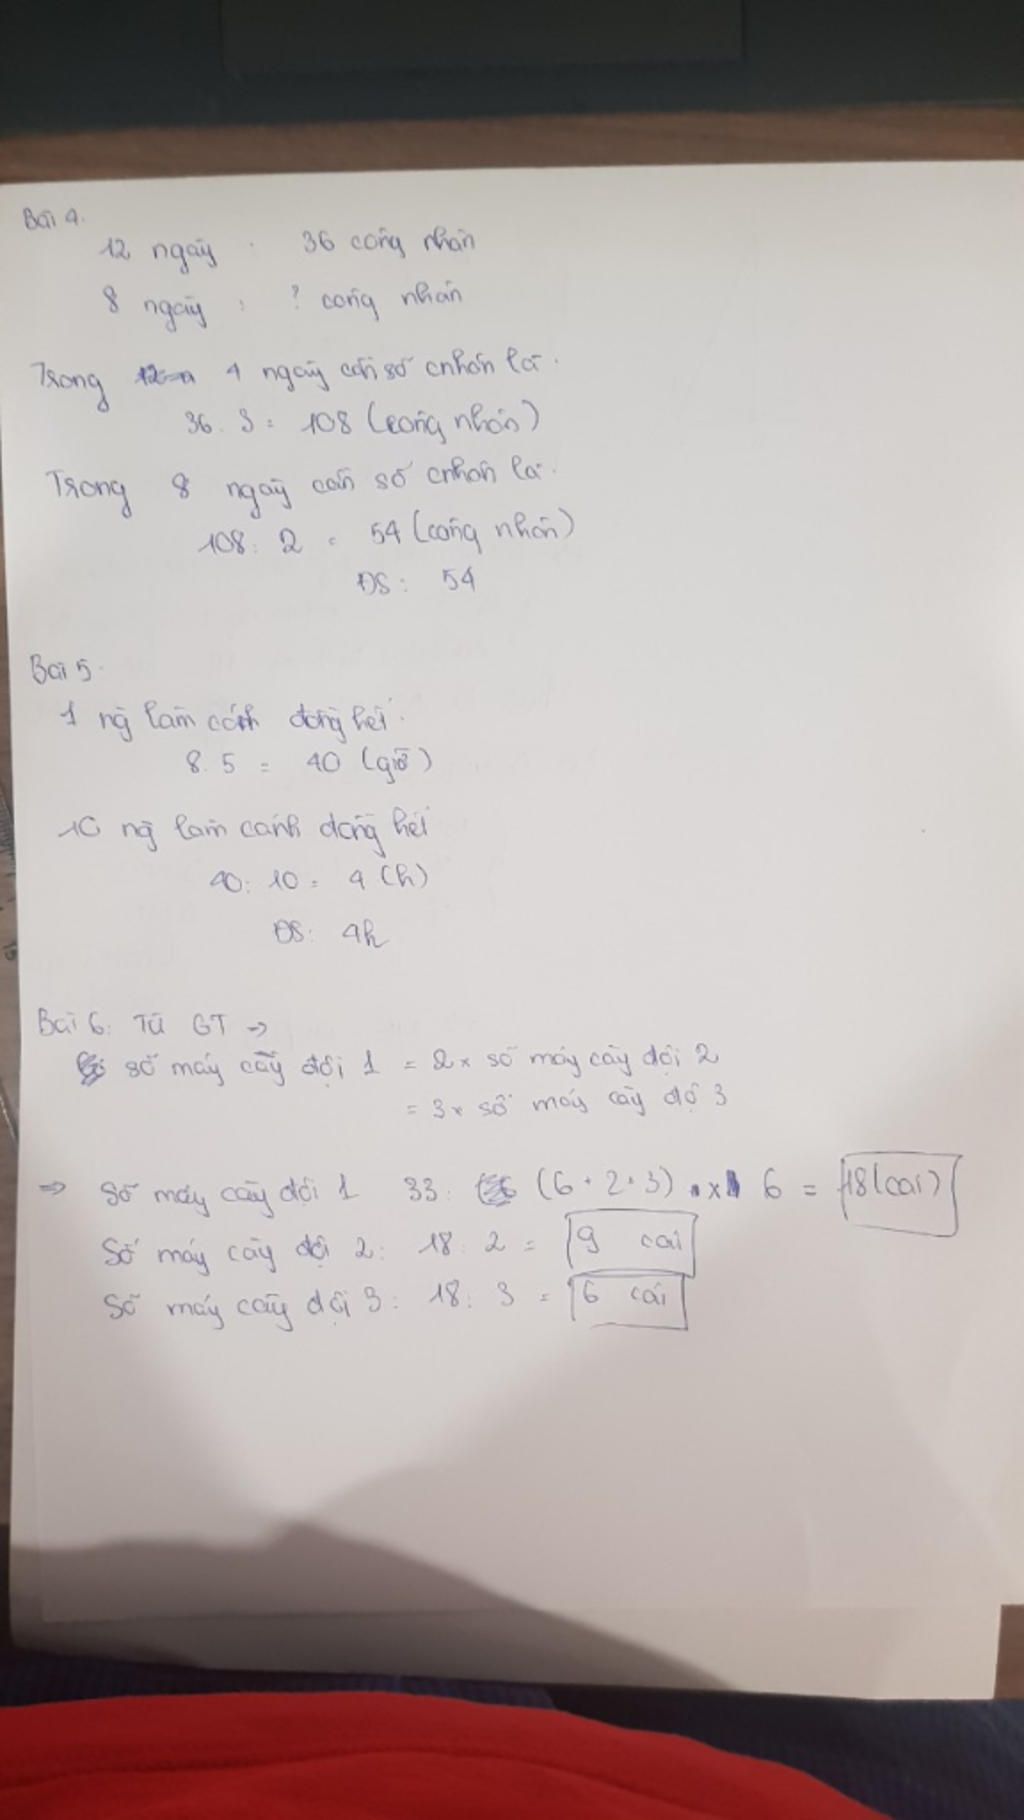 Bài 4.
12 ngày : 36 công nhân
8 ngày : ? công nhân
Trong 4 ngày cần số cnhân là.
36 . 3 = 108 (công nhân)
Trong 8 ngày cần số cnhân là.
108 : 2 = 54 (công nhân)
ĐS : 54
Bài 5.
1 ng làm cánh đồng hết
8 . 5 = 40 (giờ)
10 ng làm cánh đồng hết
40 : 10 = 4 (h)
ĐS : 4h
Bài 6: Từ GT ⇒
số máy cày đội 1 = 2 x số máy cày đội 2
= 3 x số máy cày độ 3
⇒ Số máy cày đội 1 33 : (6 + 2 + 3) x 6 = 18 (cái)
Số máy cày đội 2 : 18 : 2 = 9 cái
Số máy cày đội 3 : 18 : 3 = 6 cái